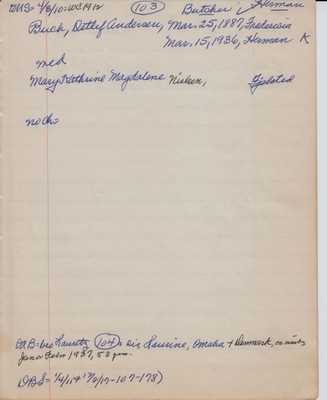 DMS= 4/8/10=WC 1912 103 Butcher, Herman
Buck, Detlef Andersen, Mar. 25, 1887, Fredericia
Mar. 15, 1936, Herman K
med
Mary Kathrine Magdalene Nielsen, Gjelsted
no ch=
DAB= bro Lauritz 104= sis Laurine, Omaha + Denmark, on visit
Jan or Feb 1937, 52 yrs.
DBS= 1/4/11+ 12/2/17-107-178)